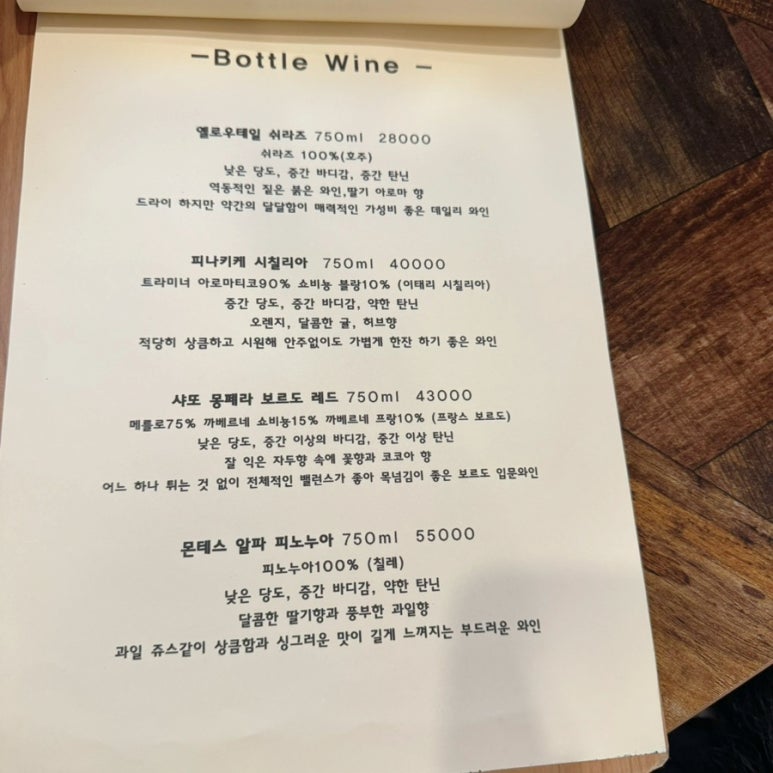 –Bottle Wine –
옐로우테일 쉬라즈 750ml 28000
쉬라즈 100%(호주)
낮은 당도, 중간 바디감, 중간 탄닌
역동적인 짙은 붉은 와인,딸기 아로마 향
드라이 하지만 약간의 달달함이 매력적인 가성비 좋은 데일리 와인
피나키케 시칠리아 750ml 40000
트라미너 아로마티코90% 쇼비뇽 블랑10% (이태리 시칠리아)
중간 당도, 중간 바디감, 약한 탄닌
오렌지, 달콤한 귤, 허브향
적당히 상큼하고 시원해 안주없이도 가볍게 한잔 하기 좋은 와인
샤또 몽페라 보르도 레드 750ml 43000
메를로75% 까베르네 쇼비뇽15% 까베르네 프랑10% (프랑스 보르도)
낮은 당도, 중간 이상의 바디감, 중간 이상 탄닌
잘 익은 자두향 속에 꽃향과 코코아 향
어느 하나 튀는 것 없이 전체적인 밸런스가 좋아 목넘김이 좋은 보르도 입문와인
몬테스 알파 피노누아 750ml 55000
피노누아100% (칠레)
낮은 당도, 중간 바디감, 약한 탄닌
달콤한 딸기향과 풍부한 과일향
과일 쥬스같이 상큼함과 싱그러운 맛이 길게 느껴지는 부드러운 와인